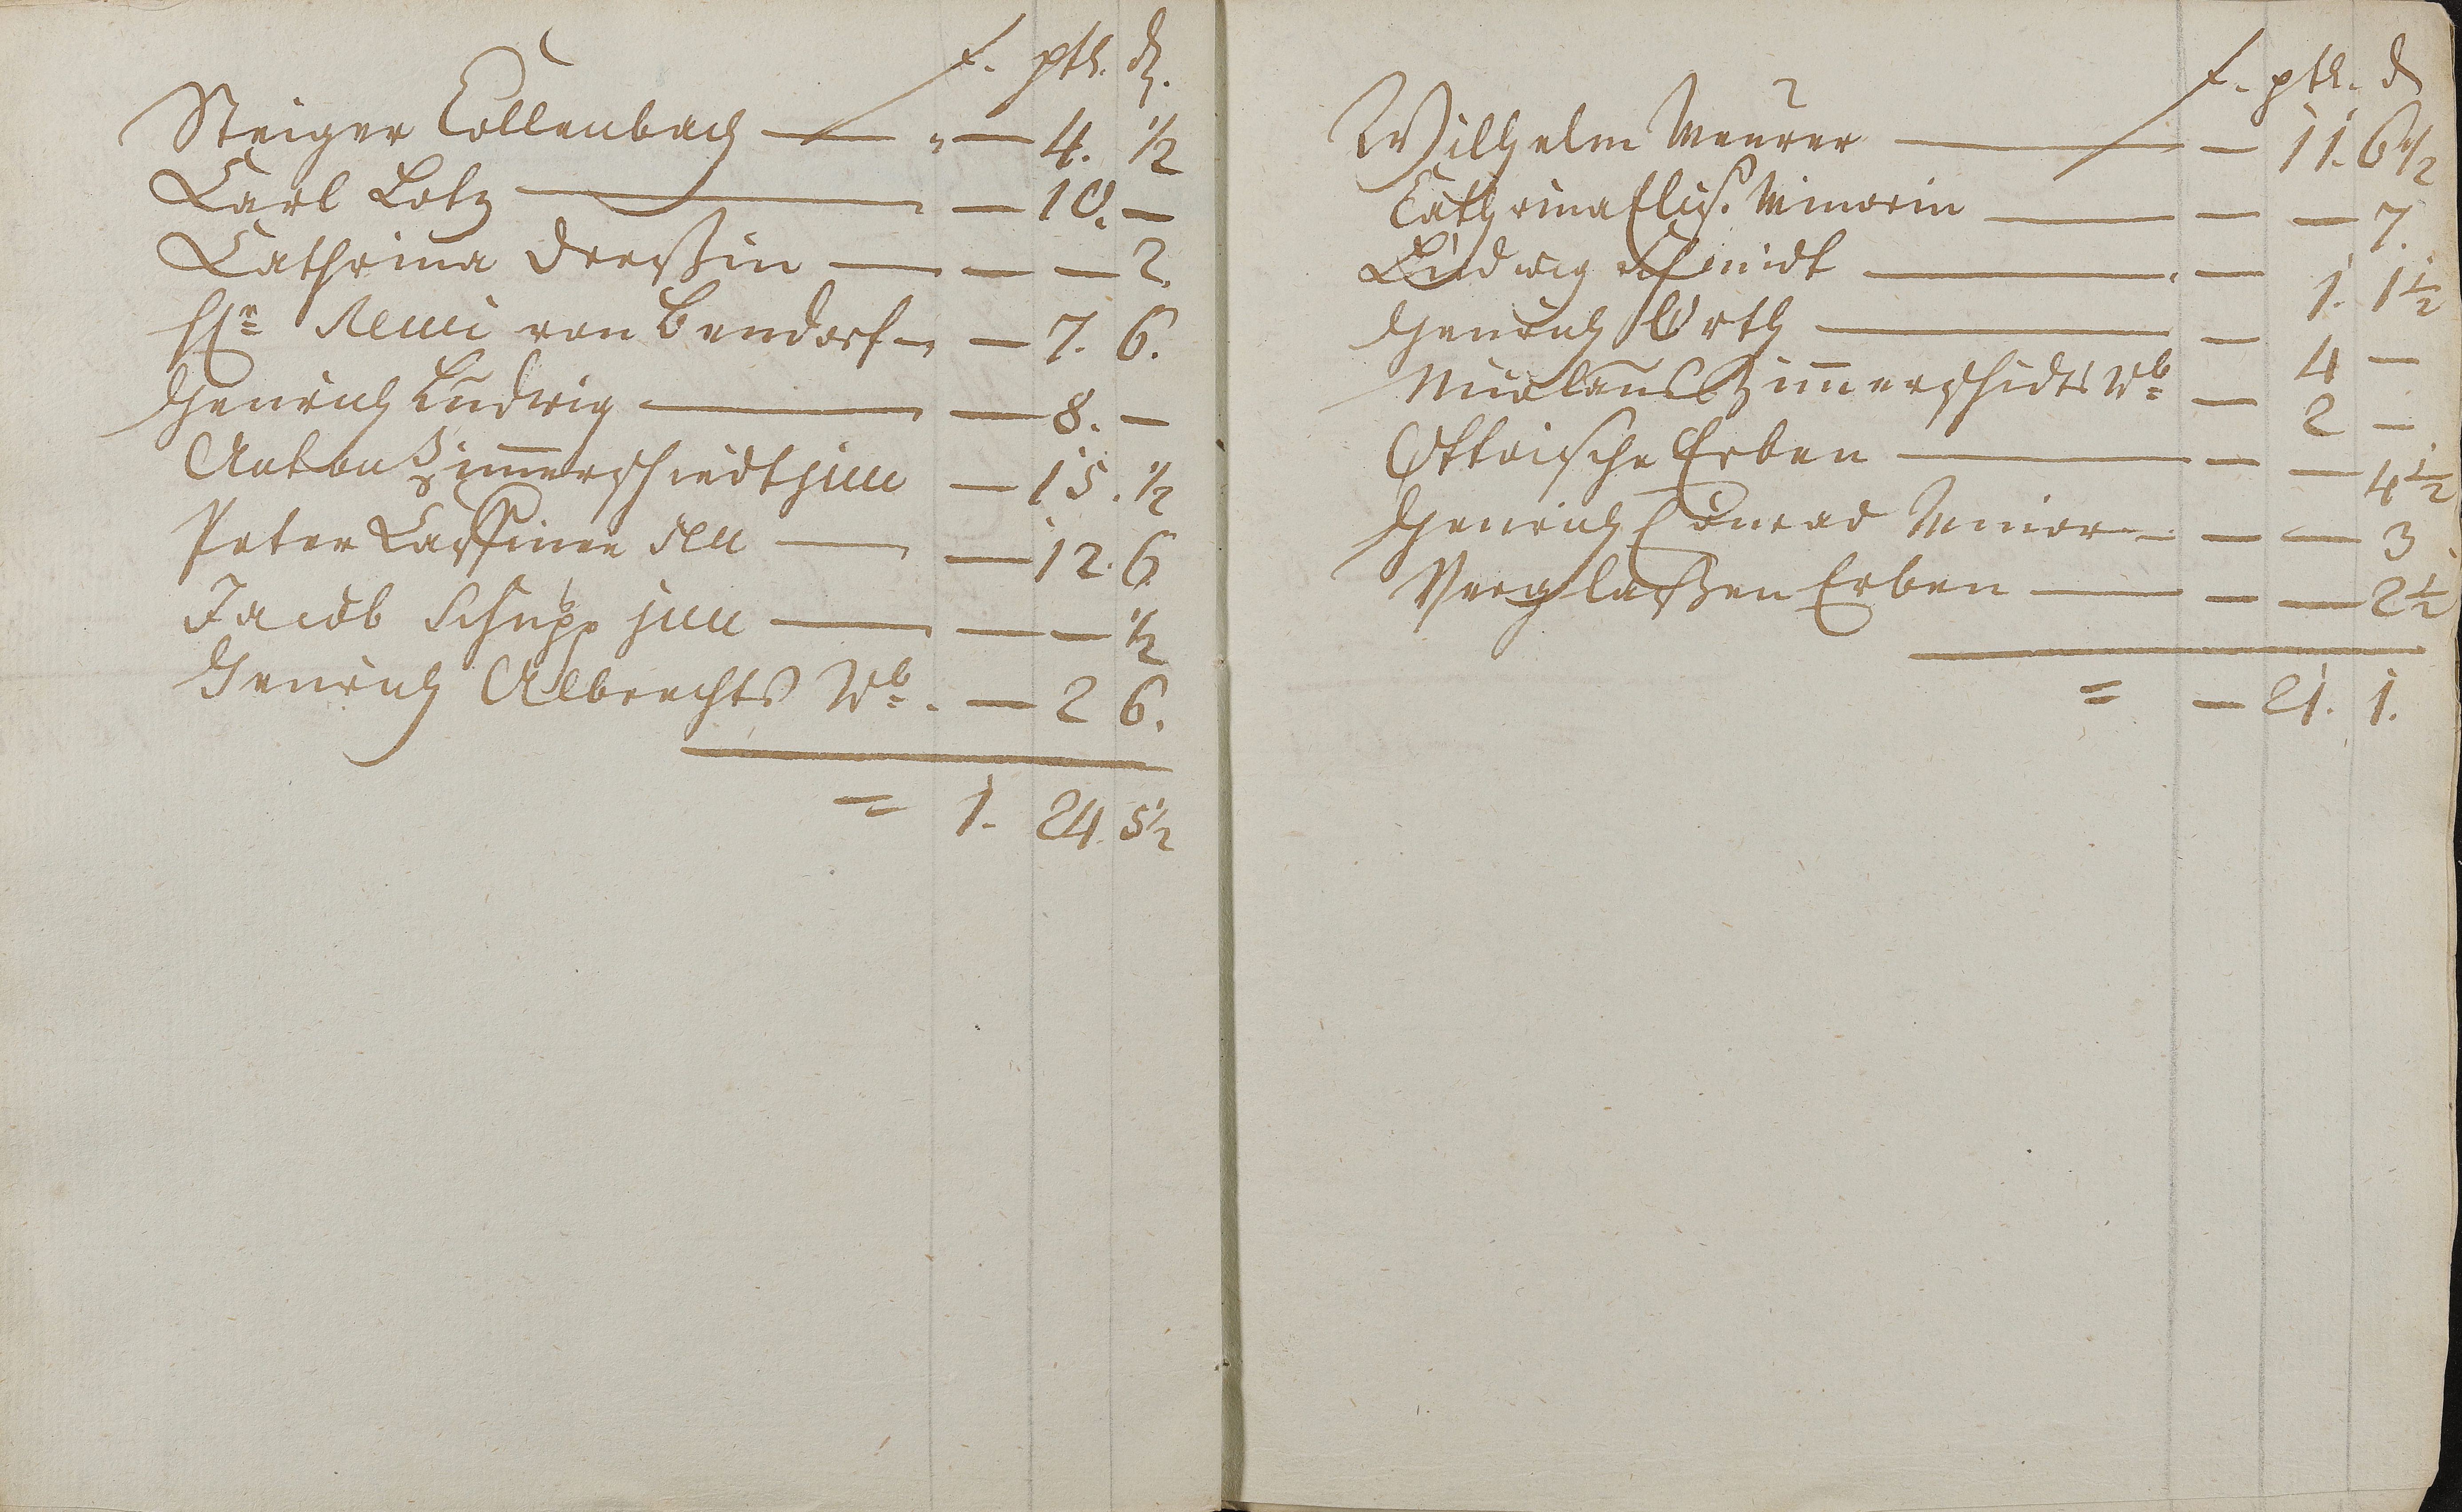 f. ptl. d.
Steiger Collenbach — " — 4. ½
Carl Lotz — — 10. —
Cathrina Dreßin — — — 2.
H^r Remi von Bendorf — — 7. 6.
Henrich Ludwig — — 8. —
Anton Zim̄erschiedt jun — 15. ½
Peter Cassinee sen — — 12. 6
Jacob Schupp jun — — — ½
Henrich Albrechts Wb. — 2 6.
= 1. 24. 5½
2
f. ptl. d
Wilhelm Meurer — — 11. 6½
Cathrina Elis. Minorin — — — 7.
Ludwig Schmidt — — 1. 1½
Henrich Orth — — 4 —
Nicolaus Zim̄erschidts Wb — 2 —
Ottoische Erben — — — 4½
Henrich Conrad Minor — — — 3
Erben — — — 2½
= — 21. 1.